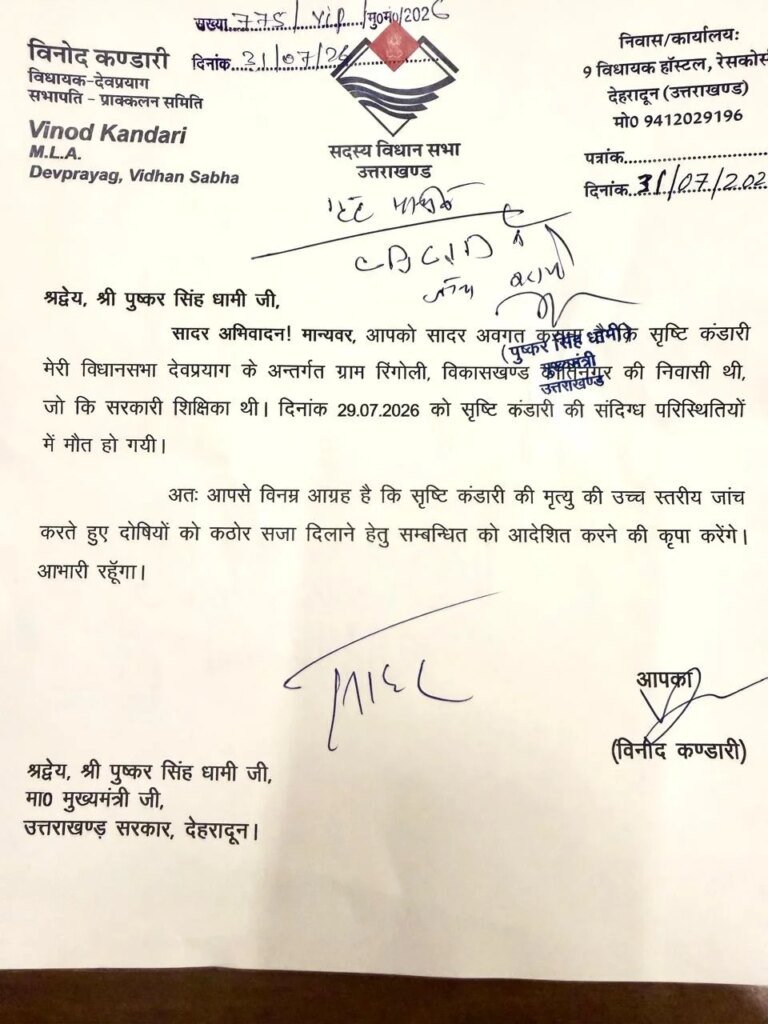 संख्या 775/vip/मु0मं0/2026
दिनांक 31/07/26
विनोद कण्डारी
विधायक-देवप्रयाग
सभापति - प्राक्कलन समिति
Vinod Kandari
M.L.A.
Devprayag, Vidhan Sabha
सदस्य विधान सभा
उत्तराखण्ड
निवास/कार्यालयः
9 विधायक हॉस्टल, रेसकोर्स
देहरादून (उत्तराखण्ड)
मो0 9412029196
पत्रांक
दिनांक 31/07/202
CBCID
जाँच
श्रद्वेय, श्री पुष्कर सिंह धामी जी,
सादर अभिवादन! मान्यवर, आपको सादर अवगत कराना है कि सृष्टि कंडारी
(पुष्कर सिंह धामी)
मुख्यमंत्री
उत्तराखण्ड
मेरी विधानसभा देवप्रयाग के अन्तर्गत ग्राम रिंगोली, विकासखण्ड कीर्तिनगर की निवासी थी,
जो कि सरकारी शिक्षिका थी। दिनांक 29.07.2026 को सृष्टि कंडारी की संदिग्ध परिस्थितियों
में मौत हो गयी।
अतः आपसे विनम्र आग्रह है कि सृष्टि कंडारी की मृत्यु की उच्च स्तरीय जांच
करते हुए दोषियों को कठोर सजा दिलाने हेतु सम्बन्धित को आदेशित करने की कृपा करेंगे।
आभारी रहूँगा।
आपका
(विनोद कण्डारी)
श्रद्वेय, श्री पुष्कर सिंह धामी जी,
मा0 मुख्यमंत्री जी,
उत्तराखण्ड़ सरकार, देहरादून।